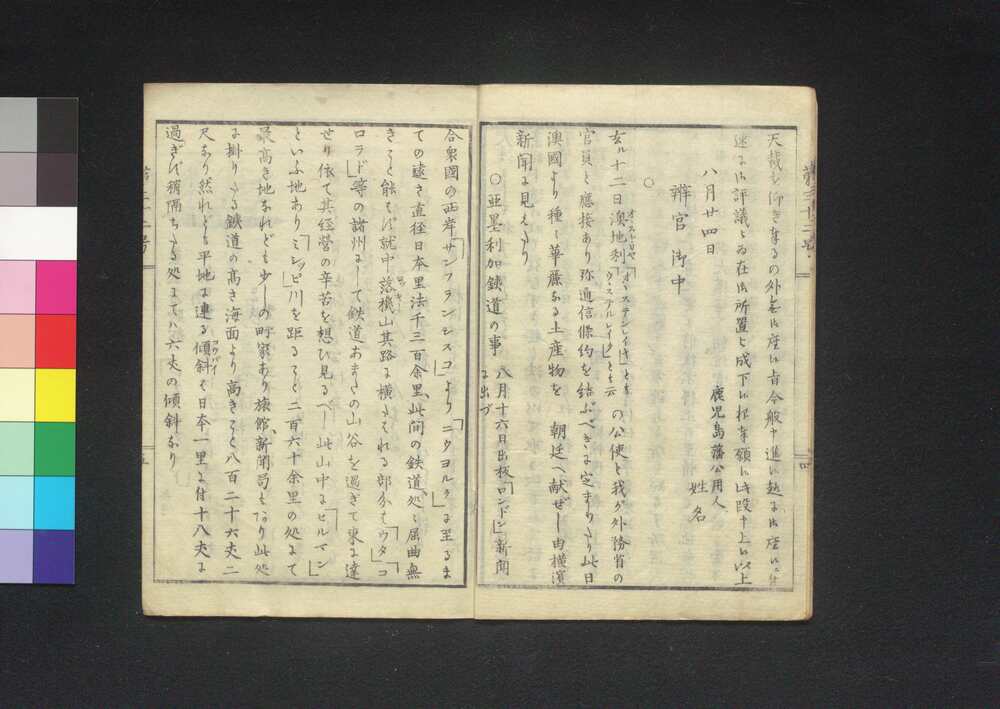 天裁を仰き奉るの外無御座候旨今般申進候趣に御座候付
速に御評議を為在御所置を成下候様奉願候此段申上候以上
鹿児島藩公用人
姓名
八月廿四日
辨官御中
○
去ル十二日澳地利「オヽステンレイキ」ともの公使と我が外務省の
官員と應接あり弥通信條約を結ぶべきに定まりたり此日
澳國より種々華麗なる土産物を 朝廷へ献ぜし由横濱
新聞に見えたり
○亜墨利加鐵道の事 八月十六日出板「ロンドン」新聞に出づ
合衆國の西岸「サンフランシスコ」より「ニウヨルク」に至るま
での遠さ直径日本里法千三百余里、此間の鉄道処々屈曲無
きこと能はず就中落機山其路に横たはれる部分は「ウタ」「コ
ロラド」等の諸州にして鉄道あまたの山谷を過ぎて東に達
せり依て其経営の辛苦を想ひ見るべし此山中に「セルマン」
といふ地あり「ミシシッピ」川を距ること二百六十余里の処にて
最高き地なれども少しの町家あり旅館、新聞局もあり此処
に掛りたる鉄道の高さ海面より高きこと八百二十六丈二
尺なり然れども平地に連る傾斜は日本一里に付十八丈に
過ぎず稍隔ちたる処にてハ六丈の傾斜なり